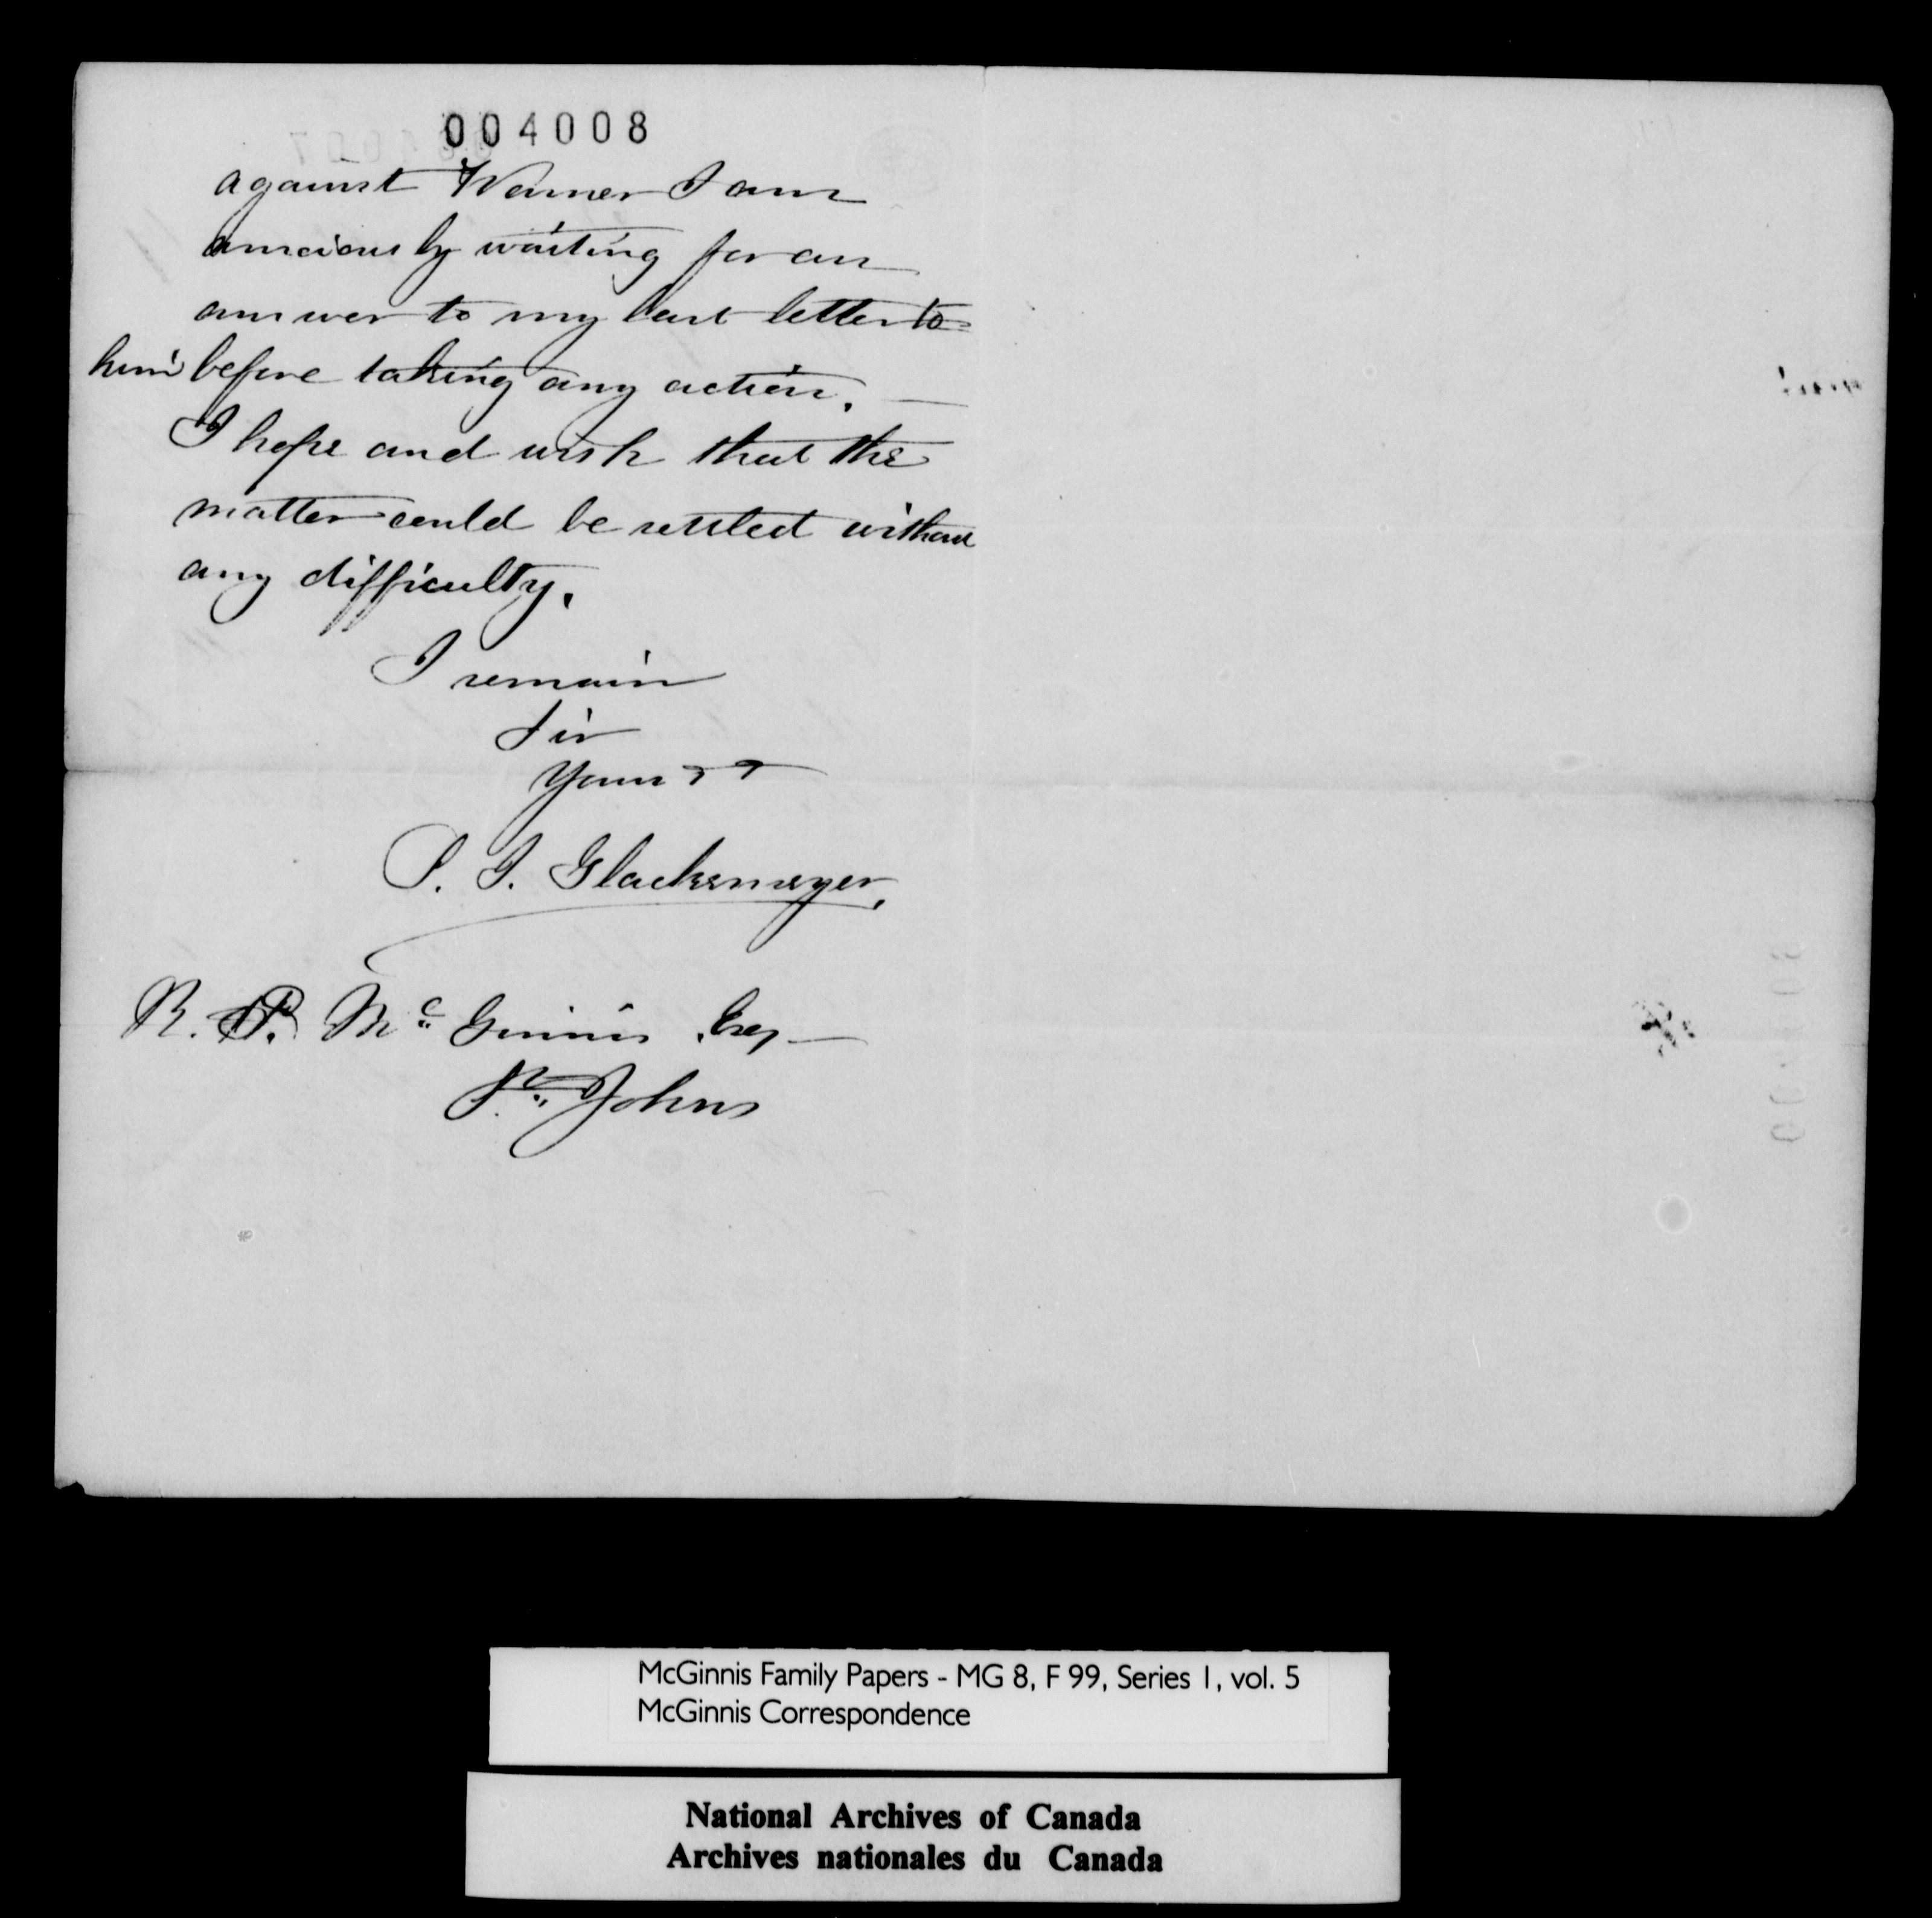 004008
against Warner I am
anxiously waiting for an
answer to my last letter to
him before taking any action. —
I hope and wish that the
matter could be settled without
any difficulty.
I remain
Sir
Yours
Glackemeyer.
R. Mc Ginnis Esq —
St. Johns
McGinnis Family Papers - MG 8, F 99, Series 1, vol. 5
McGinnis Correspondence
National Archives of Canada
Archives nationales du Canada